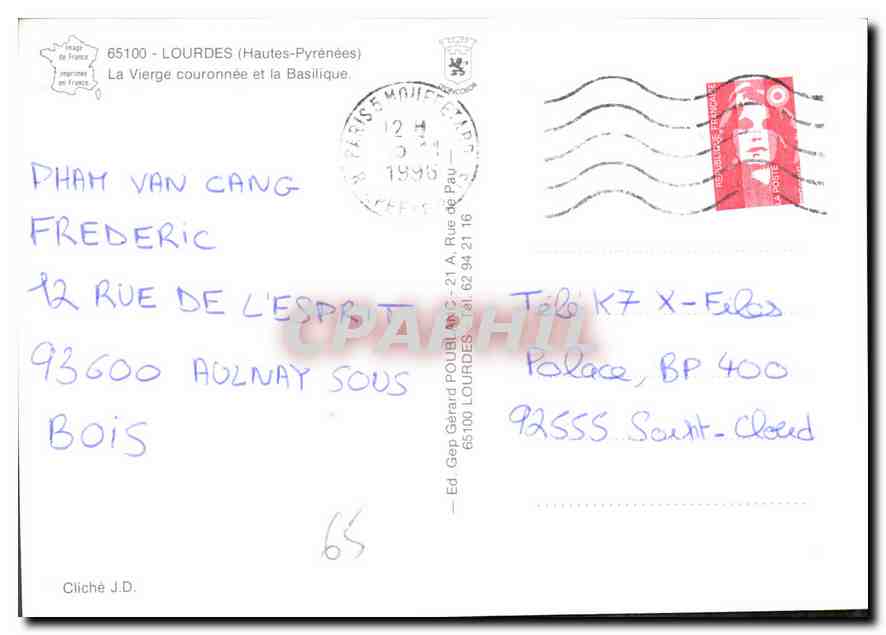 Image
de France
imprimée
en France
65100 - LOURDES (Hautes-Pyrénées)
La Vierge couronnée et la Basilique.
PARIS 5 MOUFFETARD
12 H
1996
REPUBLIQUE FRANÇAISE
LA POSTE
PHAM VAN CANG
FREDERIC
12 RUE DE L'ESPRIT
93600 AULNAY SOUS
BOIS
65
Cliché J.D.
— Ed. Gep Gérard POUBLANC - 21 A, Rue de Pau —
65100 LOURDES - Tél. 62 94 21 16
Télé K7 X-Files
Palace, BP 400
92555 Saint-Cloud
CPAPHIL